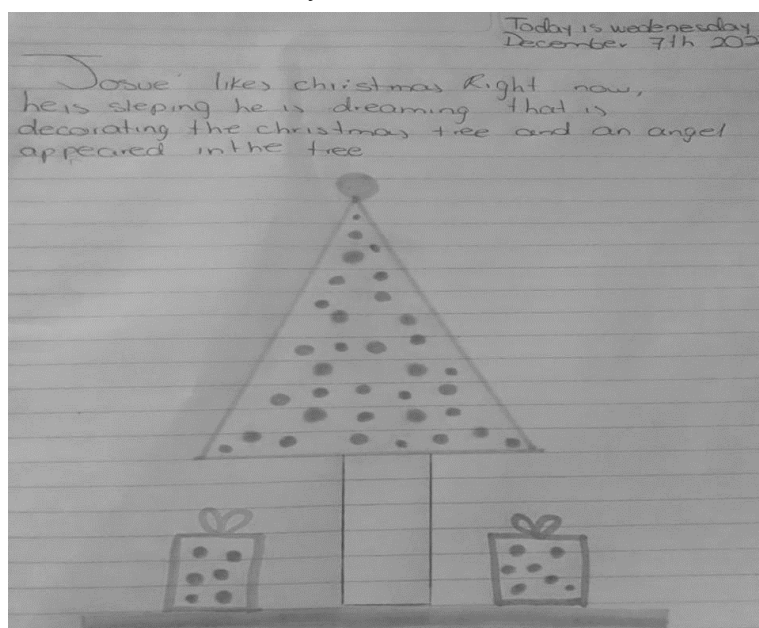 Today is wedenesday
December 7th 202
Josue likes christmas Right now,
he is sleping he is dreaming that is
decorating the christmas tree and an angel
appeared in the tree